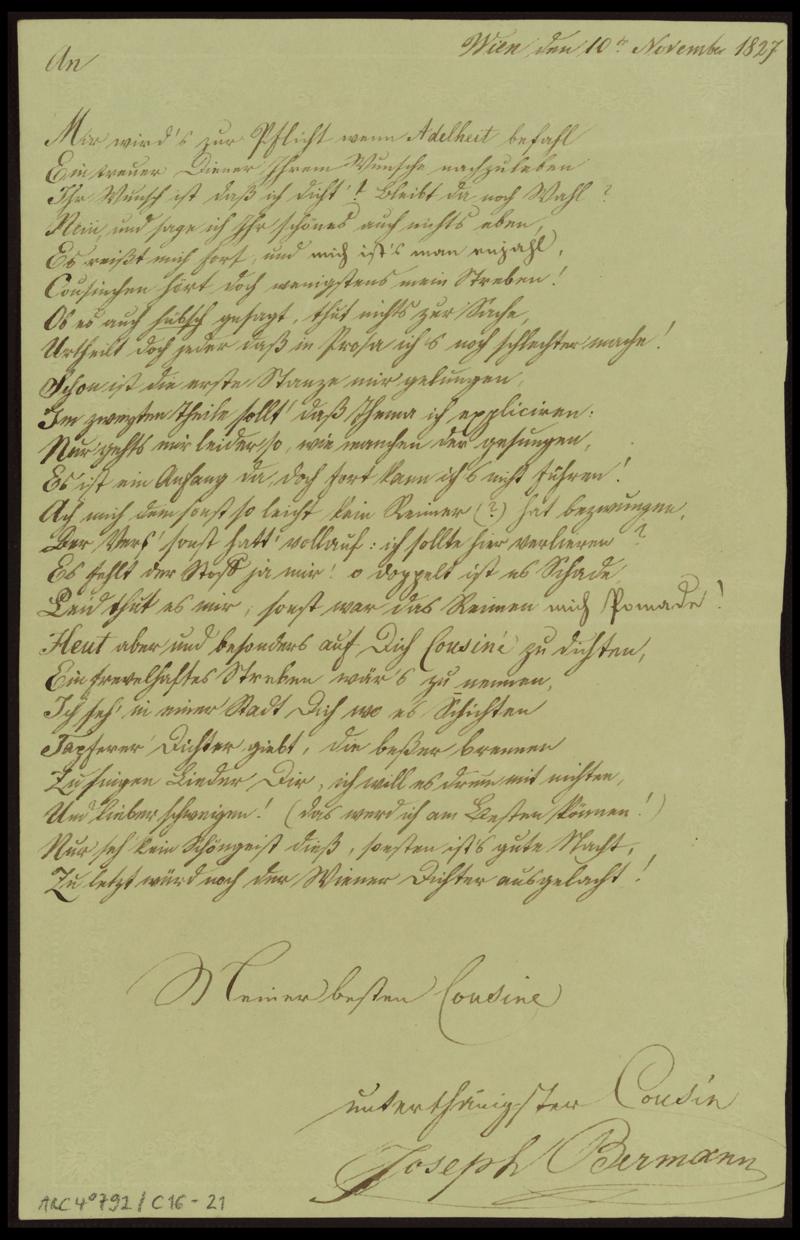 Wien den 10tn November 1827
An
Mir wird's zur Pflicht wenn Adelheit befahl
Ein treuer Diener Ihrem Wunsche nachzuleben
Ihr Wunsch ist daß ich dicht'! Bleibt da noch Wahl?
Nein, und sage ich Ihr schönes auch nichts eben,
Es reißt mich fort, und mich ist's man
Cousinchen hört doch wenigstens mein Streben!
Ob es auch hübsch gesagt, thut nichts zur Sache,
Urtheilt doch jeder daß in Prosa ich's noch schlechter mache!
Schon ist die erste Stanze mir gelungen,
Im zweyten Theile sollt' daß Thema ich expliciren:
Nur gehts mir leider so, wie manchen der gesungen,
Es ist ein Anfang da, doch fort kann ich's nicht führen!
Ach mich dem sonst so leicht kein Reimer (?) hat bezwungen,
Der Vers' sonst hatt' vollauf: ich sollte hier verlieren?
Es fehlt der Stoff ja mir! o doppelt ist es Schade
Leid thut es mir, sonst war das Reimen mich Pomade!
Heut aber und besonders auf Dich Cousine zu dichten,
Ein frevelhaftes Streben wär's zu nennen,
Ich seh' in einer Stadt Dich wo es Schichten
Tapferer Dichter giebt, die beßer brennen
Zu singen Lieder Dir, ich will es drum mit nichten,
Und lieber schweigen! (das werd ich am Besten können!)
Nur seh kein Schöngeist dieß, sonsten ist's gute Nacht,
Zu letzt würd noch der Wiener Dichter ausgelacht!
Meiner besten Cousine
unterthänigster Cousin
Joseph Bermann
ARC 4° 792 / C16 - 21